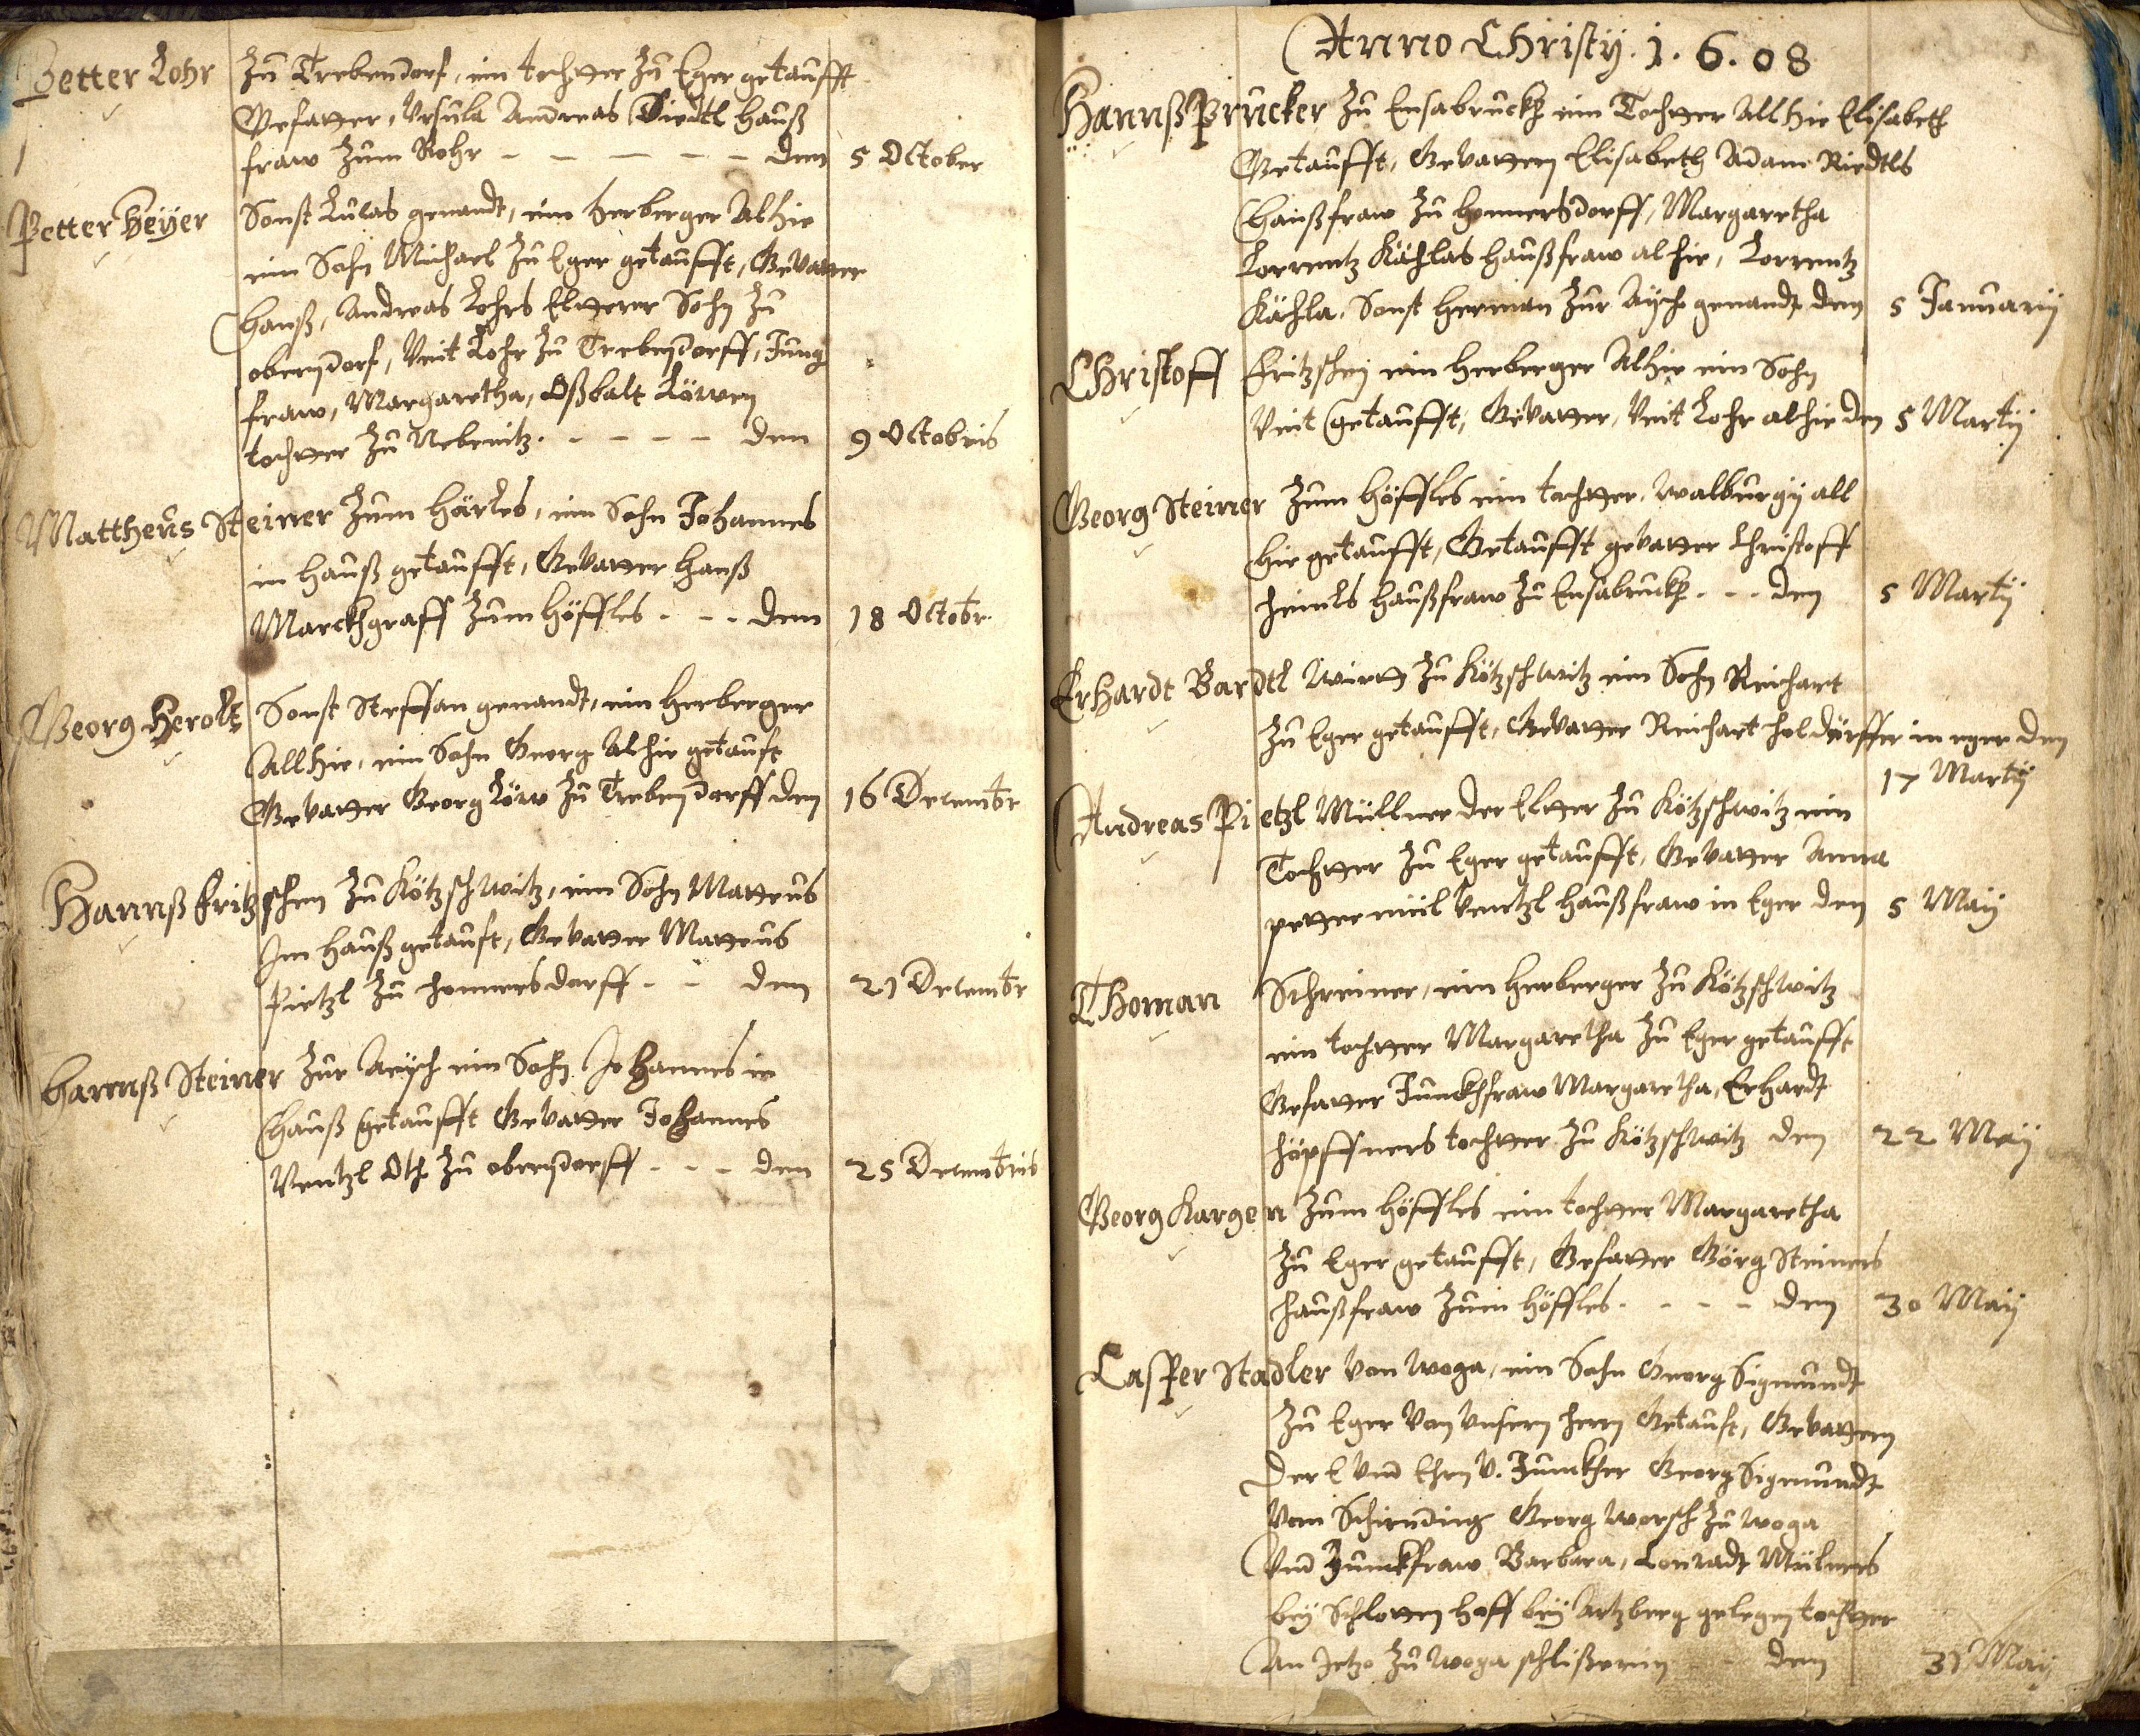 Petter Lohr Zu Trebendorf, ein tochtter Zu Eger getaufft
Gefatter, Ursula Andreas Riedtl hauß
fraw Zum Rohr - - - - - den 5 October
Petter Heyer Sonst Lucas genandt, ein herberger Alhie
ein Sohn Michael Zu Eger getaufft, Gevatter
hanß, Andreas Lohrs Eltterer Sohn Zu
oberndorf, Veit Lohr Zu Trebendorff, Jung
fraw, Margaretha, Oßbalt Löwen
tochtter Zu Nebenitz. - - - - den 9 Octobris
Mattheus Steiner Zum Härles, ein Sohn Johannes
in hauß getaufft, Gevatter hanß
Marckhgraff Zum höffles - - - den 18 Octobr
Georg Herolt Sonst Steffan genandt, ein herberger
Allhie, ein Sohn Georg Alhie getauft
Gevatter Georg Löw Zu Trebendorff den 16 Decembr
Hannß fritzschen Zu Kötzschwitz, ein Sohn Matteus
Im hauß getauft, Gevatter Matteus
Pietzl Zu honnersdorff - - den 21 Decembr
Hannß Steiner Zur Aÿch ein Sohn Johannes in
hauß getaufft Gevatter Johannes
Ventzl Oth Zu oberndorff - - - den 25 Decembris
Anno Christÿ. 1. 6. 08
Hannß Prucker Zu Ensabruckh ein Tochtter Allhie Elisabeth
Getaufft, Gevattern Elisabeth Adam Riedtls
haußfraw Zu honnersdorff, Margaretha
Lorrentz Kächlas haußfraw alhie, Lorrentz
Kächla, Sonst herman Zur Aÿch genandt den 5 Januarÿ
Christoff fritzschen ein herberger Alhie ein Sohn
Veit getaufft, Gevatter, Veit Lohr alhie den 5 Martÿ
Georg Steiner Zum höffles ein tochtter, walburgÿ all
hie getaufft, Getaufft gevatter Christoff
heinls haußfraw Zu Ensabruckh - - - den 5 Martÿ
Erhardt Bardtl wirtt Zu Kötzschwitz ein Sohn Reichart
Zu Eger getaufft, Gevatter Reichart holdörffer in eger den
17 Martÿ
Andreas Pietzl Müllner der Eltter Zu Kötzschwitz ein
Tochtter Zu Eger getaufft, Gevatter Anna
petter Ventzl haußfraw in Eger den 5 Maÿ
Thoman Schreiner, ein herberger Zu Kötzschwitz
ein tochtter Margaretha Zu Eger getaufft
Gefatter Junckhfraw Margaretha, Erhardt
höpffners tochtter Zu Kötzschwitz den 22 Maÿ
Georg Kargen Zum höffles ein tochtter Margaretha
Zu Eger getaufft, Gefatter Görg Steiners
haußfraw Zum höffles - - - - den 30 Maÿ
Casper Stadler von woga, ein Sohn Georg Sigmundt
Zu Eger von Unsern herrn Getauft, Gevattern
Der E Und Ehrn V. Junckher Georg Sigmundt
Von Schirnding Georg worsch Zu woga
Und Junckfraw Barbara, Conradt Mülners
beÿ Schlotten hoff beÿ Artzberg gelegen tochtter
An Jetzo Zu woga schlißerin - - den 31 Maÿ